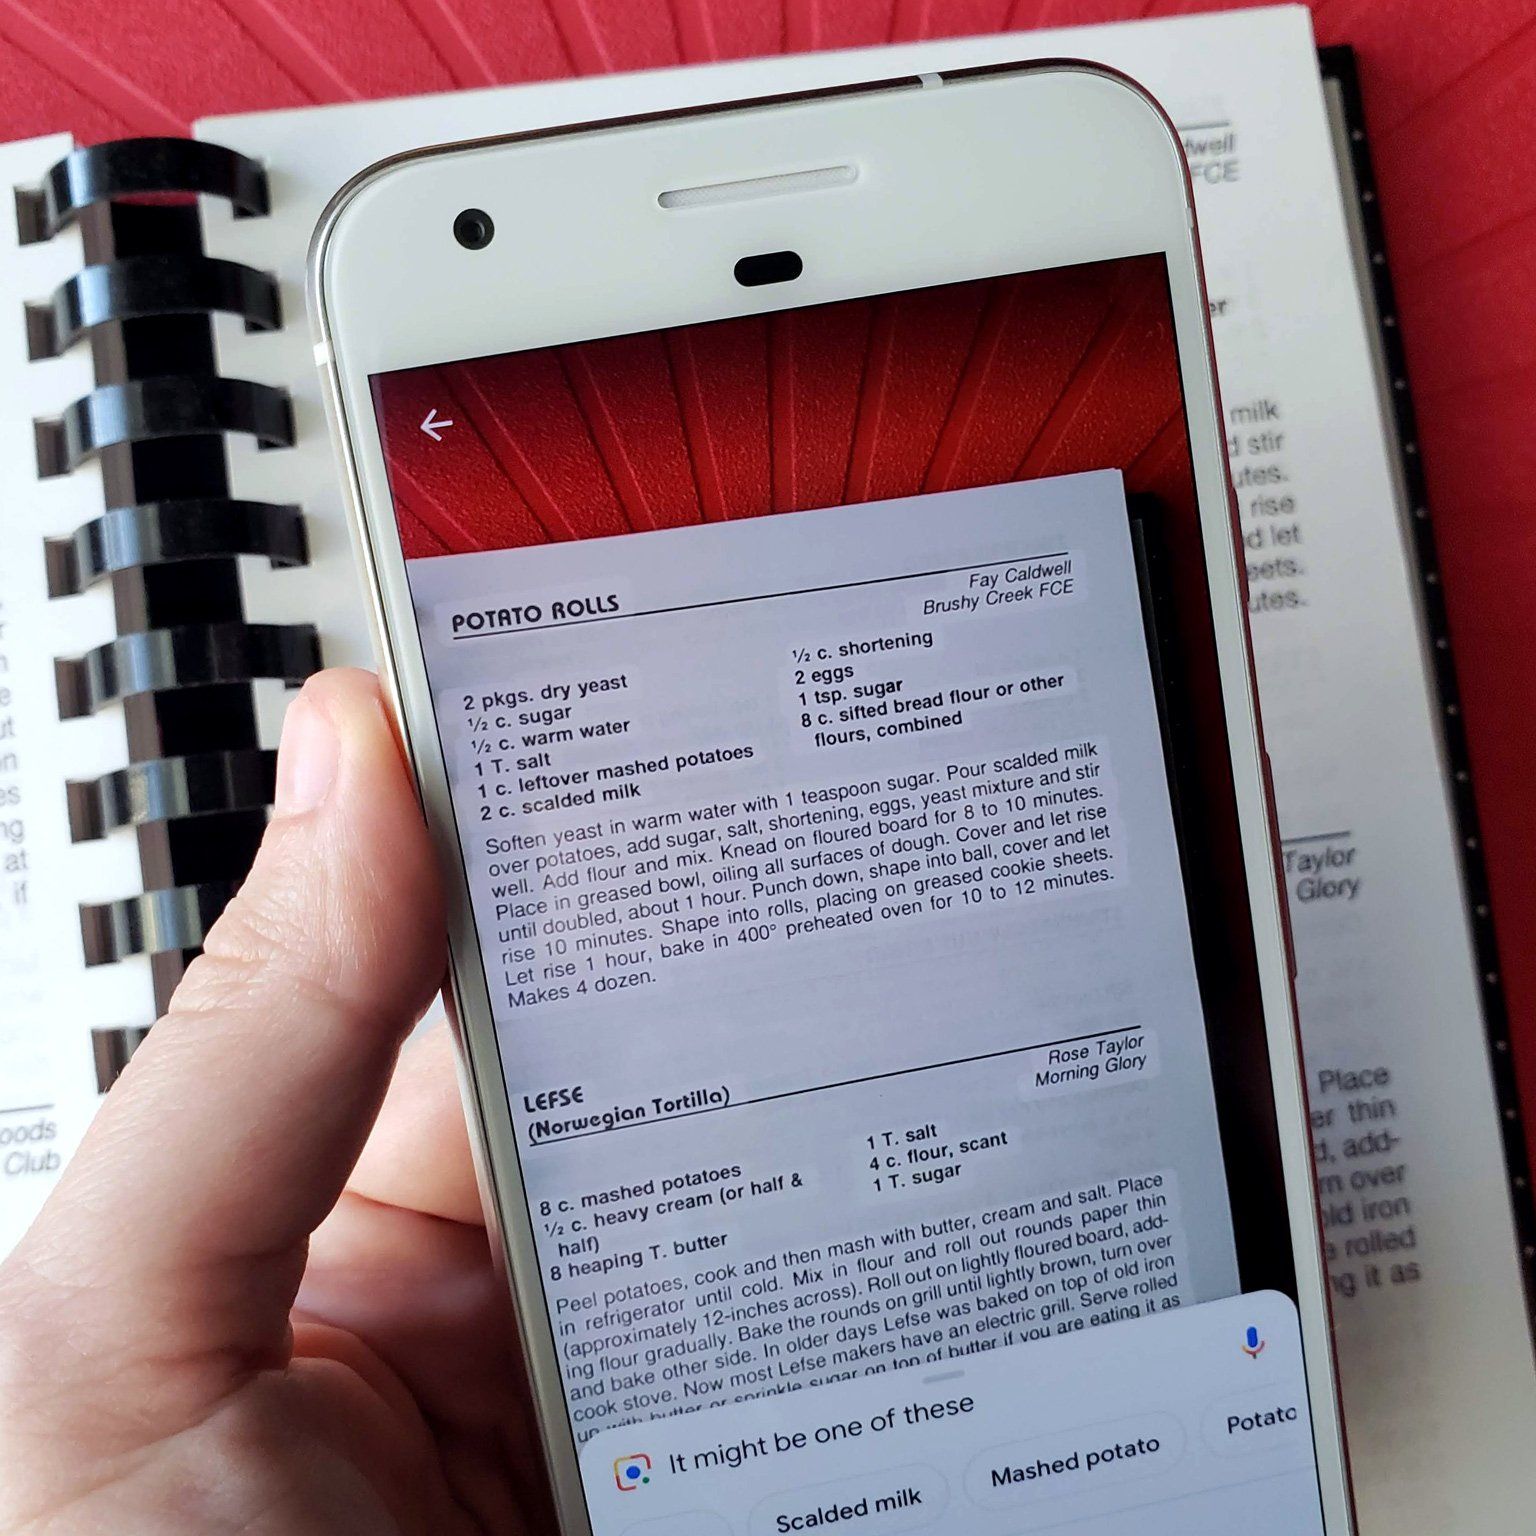 POTATO ROLLS
Fay Caldwell
Brushy Creek FCE
2 pkgs. dry yeast
½ c. sugar
½ c. warm water
1 T. salt
1 c. leftover mashed potatoes
2 c. scalded milk
½ c. shortening
2 eggs
1 tsp. sugar
8 c. sifted bread flour or other
flours, combined
Soften yeast in warm water with 1 teaspoon sugar. Pour scalded milk
over potatoes, add sugar, salt, shortening, eggs, yeast mixture and stir
well. Add flour and mix. Knead on floured board for 8 to 10 minutes.
Place in greased bowl, oiling all surfaces of dough. Cover and let rise
until doubled, about 1 hour. Punch down, shape into ball, cover and let
rise 10 minutes. Shape into rolls, placing on greased cookie sheets.
Let rise 1 hour, bake in 400° preheated oven for 10 to 12 minutes.
Makes 4 dozen.
LEFSE
(Norwegian Tortilla)
Rose Taylor
Morning Glory
8 c. mashed potatoes
½ c. heavy cream (or half &
half)
8 heaping T. butter
1 T. salt
4 c. flour, scant
1 T. sugar
Peel potatoes, cook and then mash with butter, cream and salt. Place
in refrigerator until cold. Mix in flour and roll out rounds paper thin
(approximately 12-inches across). Roll out on lightly floured board, add-
ing flour gradually. Bake the rounds on grill until lightly brown, turn over
and bake other side. In older days Lefse was baked on top of old iron
cook stove. Now most Lefse makers have an electric grill. Serve rolled
up with butter or sprinkle sugar on top of butter if you are eating it as
It might be one of these
Scalded milk
Mashed potato
Potato
well
FCE
er
milk
stir
utes.
rise
d let
eets.
utes.
Taylor
Glory
Place
er thin
d, add-
rn over
old iron
rolled
ng it as
at
if
oods
Club